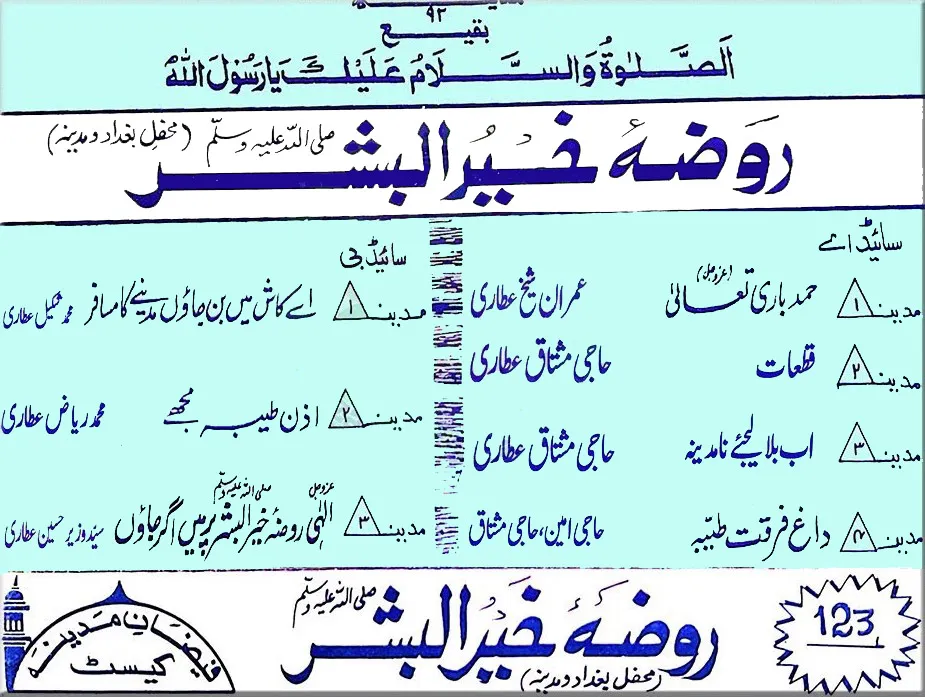 ۹۲
بقیع
اَلصَّلٰوةُ وَالسَّلَامُ عَلَیْكَ یَارَسُوْلَ اللّٰهُ
روضۂ خیر البشر صلی اللہ علیہ وسلم (محفل بغداد و مدینہ)
سائیڈ اے
مدینہ ۱ حمد باری تعالیٰ (عزوجل) عمران شیخ عطاری
مدینہ ۲ قطعات حاجی مشتاق عطاری
مدینہ ۳ اب بلا لیجئے نا مدینہ حاجی مشتاق عطاری
مدینہ ۴ داغ فرقت طیبہ حاجی امین، حاجی مشتاق
سائیڈ بی
مدینہ ۱ اے کاش میں بن جاؤں مدینے کا مسافر محمد شکیل عطاری
مدینہ ۲ اذن طیبہ مجھے محمد ریاض عطاری
مدینہ ۳ الٰہی عزوجل روضۂ خیر البشر صلی اللہ علیہ وسلم پر میں اگر جاؤں سید وزیر حسین عطاری
123
روضۂ خیر البشر صلی اللہ علیہ وسلم
(محفل بغداد و مدینہ)
فیضان مدینہ
کیسٹ